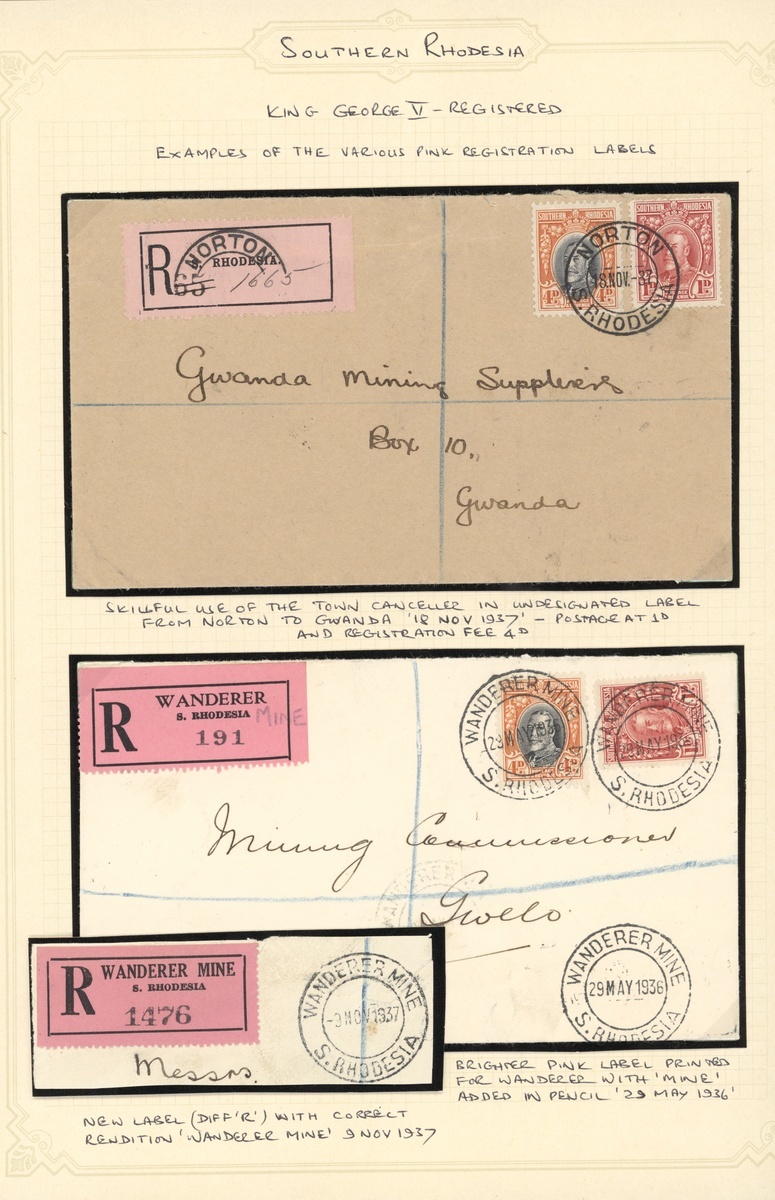 SOUTHERN RHODESIA
KING GEORGE V - REGISTERED
EXAMPLES OF THE VARIOUS PINK REGISTRATION LABELS
R NORTON
RHODESIA.
65 1665
SOUTHERN RHODESIA
4D
SOUTHERN RHODESIA
1D 1D
NORTON
18 NOV.-37
S. RHODESIA
Gwanda Mining Suppliers
Box 10,,
Gwanda
SKILLFUL USE OF THE TOWN CANCELLER IN UNDESIGNATED LABEL
FROM NORTON TO GWANDA '18 NOV 1937' - POSTAGE AT 1D
AND REGISTRATION FEE 4D
R WANDERER
S. RHODESIA MINE
191
WANDERER MINE
29 MAY 1936
S. RHODESIA
4D
WANDERER MINE
29 MAY 193
S. RHODESIA
Mining Commissioner
Gwelo.
WANDERER
WANDERER MINE
29 MAY 1936
S. RHODESIA
R WANDERER MINE
S. RHODESIA
1476
WANDERER MINE
-9 NOV 1937
S. RHODESIA
Messrs.
BRIGHTER PINK LABEL PRINTED
FOR WANDERER WITH 'MINE'
ADDED IN PENCIL '29 MAY 1936'
NEW LABEL (DIFF 'R') WITH CORRECT
RENDITION 'WANDERER MINE' 9 NOV 1937